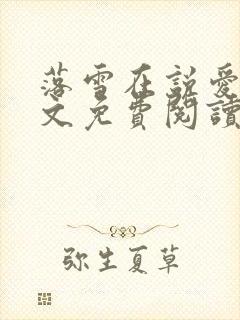 落雪在説愛
文免費閱讀
弥生夏草